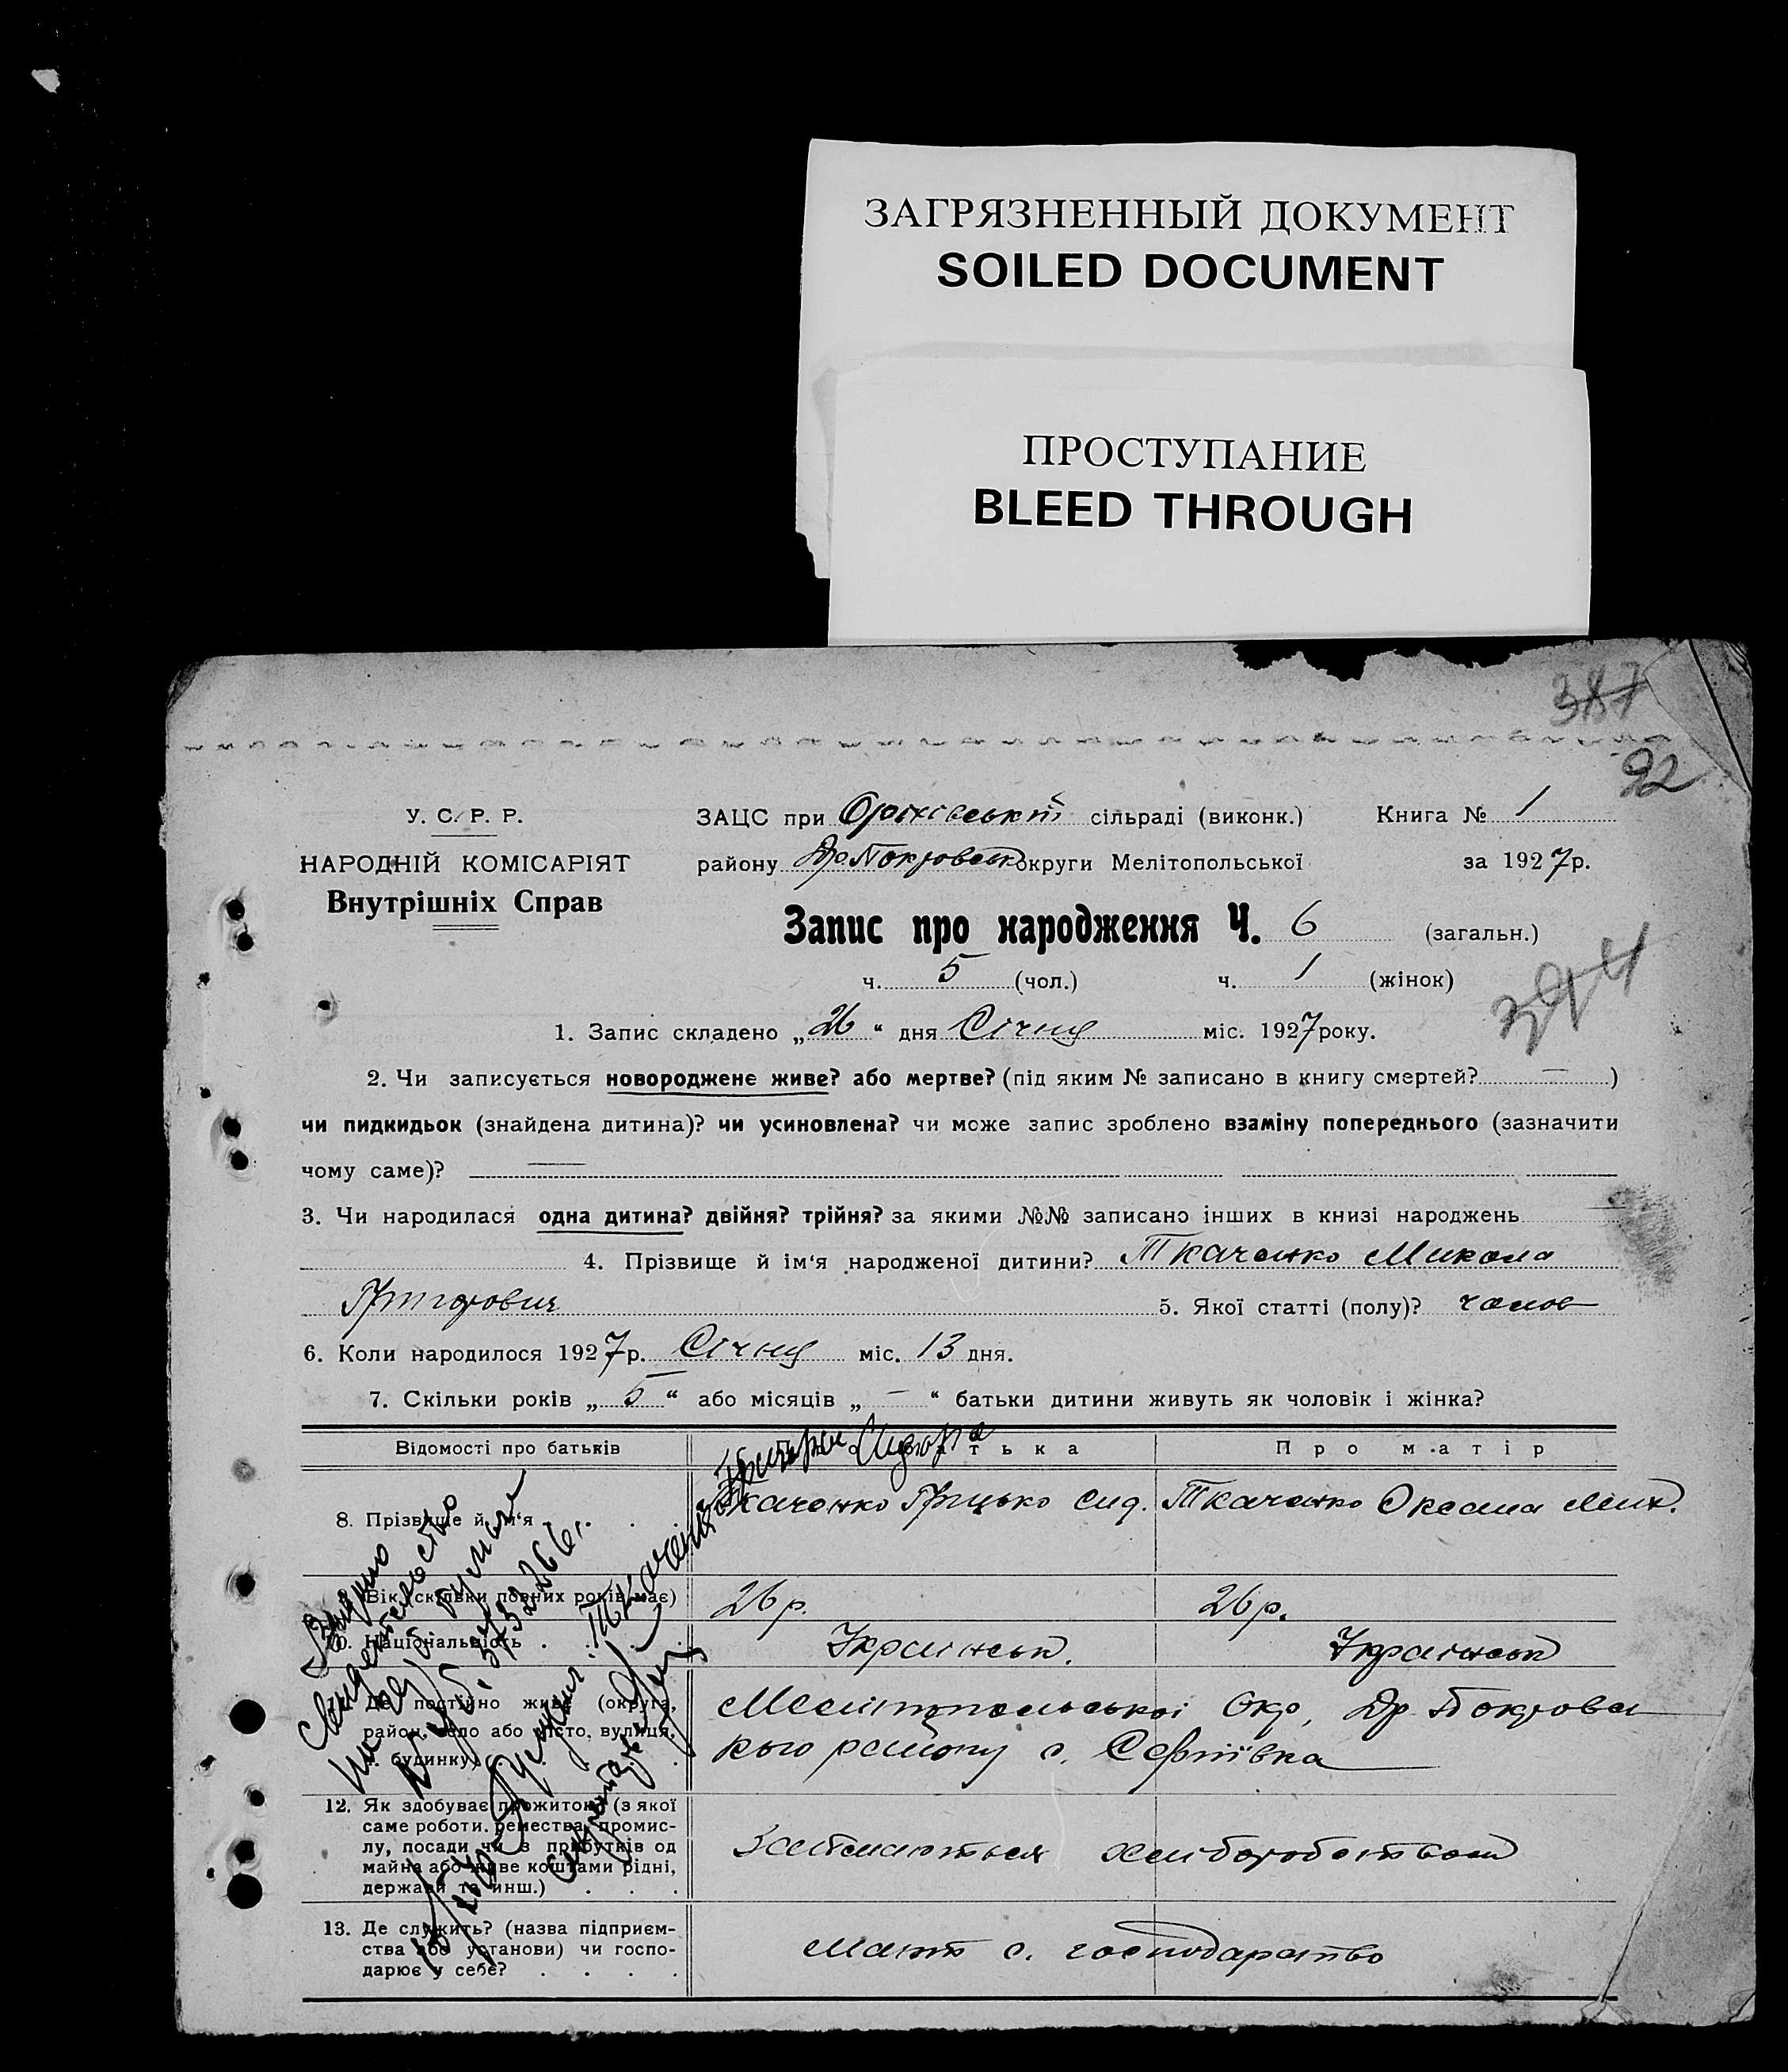 ЗАГРЯЗНЕННЫЙ ДОКУМЕНТ
SOILED DOCUMENT
ПРОСТУПАНИЕ
BLEED THROUGH
387
92
У. С. Р. Р.
НАРОДНІЙ КОМІСАРІЯТ
Внутрішніх Справ
ЗАЦС при сільраді (виконк.) Книга № 1
району округи Мелітопольської за 1927 р.
Запис про народження Ч. 6 (загальн.)
ч. 5 (чол.) ч. 1 (жінок)
394
1. Запис складено „26“ дня Січня міс. 1927 року.
2. Чи записується новороджене живе? або мертве? (під яким № записано в книгу смертей? — )
чи пидкидьок (знайдена дитина)? чи усиновлена? чи може запис зроблено взаміну попереднього (зазначити
чому саме)? —
3. Чи народилася одна дитина? двійня? трійня? за якими №№ записано інших в книзі народжень
4. Прізвище й ім‘я народженої дитини? Ткаченко Микола
Григорович 5. Якої статті (полу)? чолов
6. Коли народилося 1927 р. Січня міс. 13 дня.
7. Скільки років „5“ або місяців „—“ батьки дитини живуть як чоловік і жінка?
Відомості про батьків Про батька Про матір
8. Прізвище й ім‘я Ткаченко Грицько Сид. Ткаченко Оксана Мих.
Вік (скільки повних років має) 26 р. 26 р.
10. Національність Українськ. Українськ
Де постійно живе (округа, район, село або місто, вулиця, будинку) Мелітопольської Окр,
кого району с. Сергіївка
12. Як здобуває прожиток (з якої
саме роботи, ремества, промис-
лу, посади чи з прибутків од
майна або живе коштами рідні,
держави та инш.) Займаються хліборобством
13. Де служить? (назва підприєм-
ства або установи) чи госпо-
дарює у себе? мают с. господарство